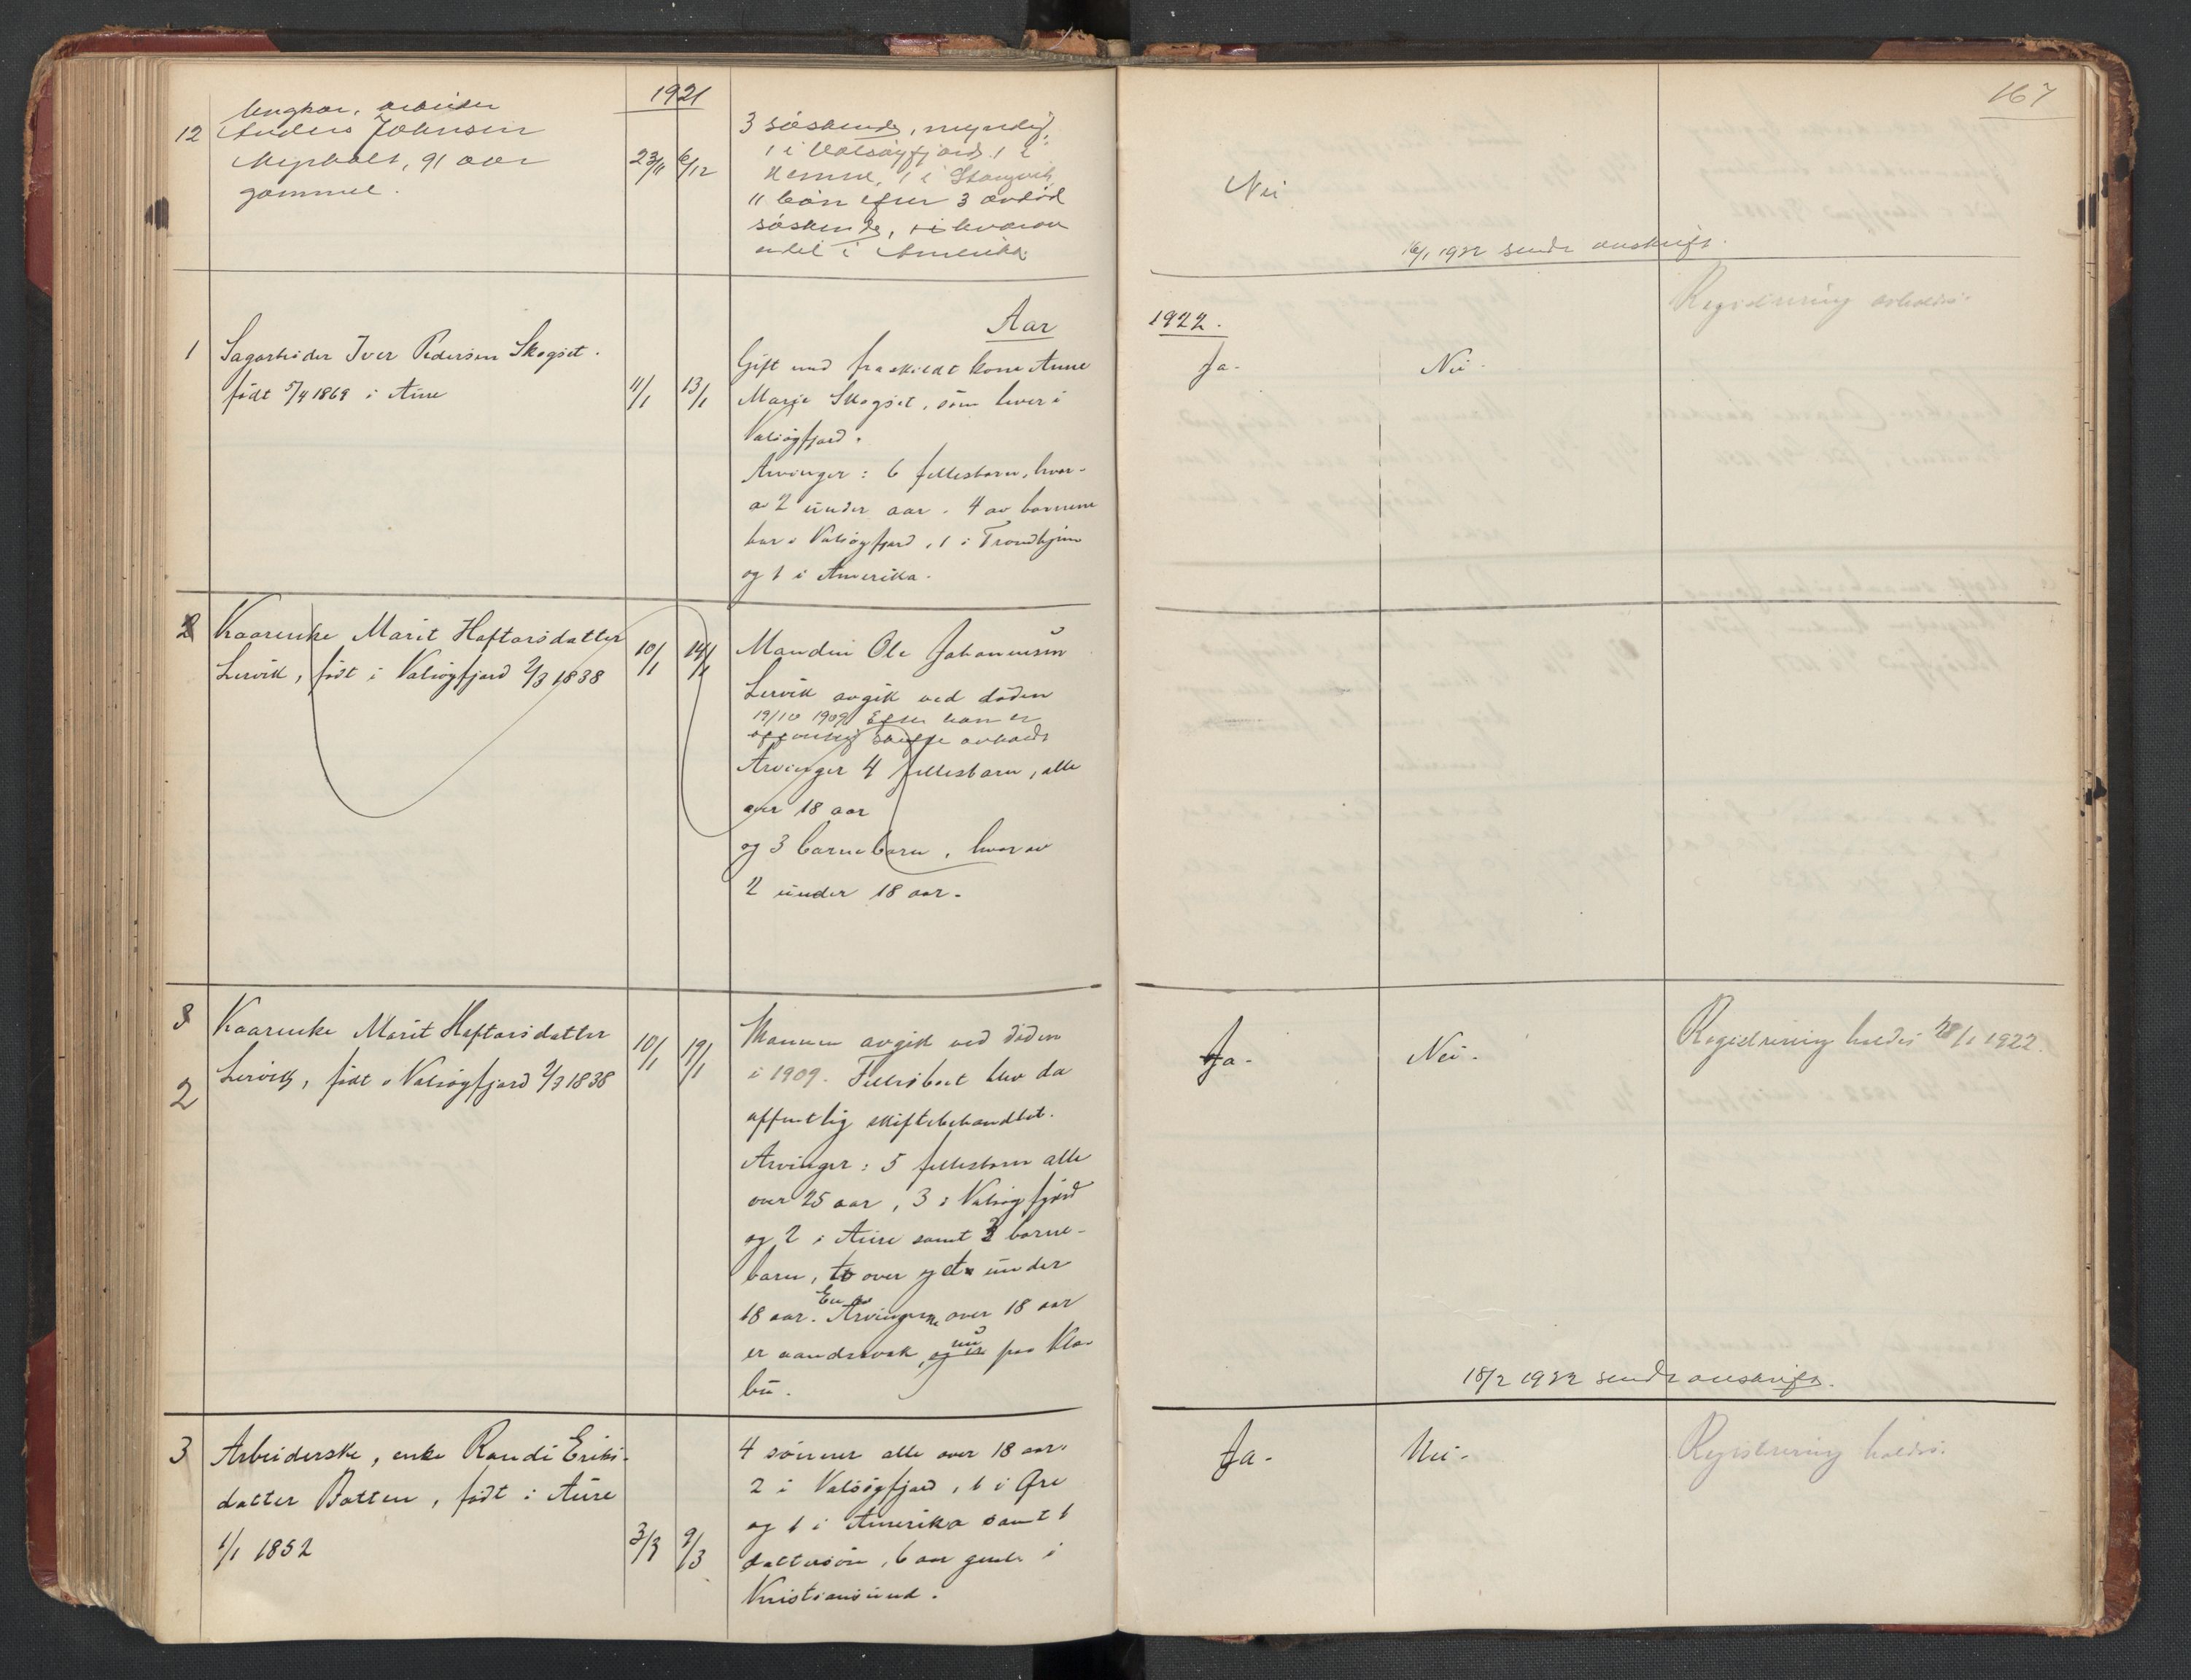 1921
167
12 Ungkar, arbeider
Anders Johnsen
91 aar
gammel.
23/11 6/12
3 søskende, myndig,
1 i Valsøyfjord, 1 i
Hemne, 1 i Stangvik
11 børn efter 3 avdød
søskende, hvorav
endel i Amerika.
Nei
16/1 1922 sendt avskrift.
Aar
1922.
1 Sagarbeider Iver Pedersen Skogset.
født 5/4 1869 i Aure
11/1 13/1
Gift med fraskildt kone Anne
Marie Skogset, som lever i
Valsøyfjord.
Arvinger: 6 fellesbarn, hvor-
av 2 under aar. 4 av barnene
bor i Valsøyfjord, 1 i Trondhjem
og 1 i Amerika.
Ja. Nei.
Registrering avholdes.
2 Kaarenke Marit Haftorsdatter
Lervik, født i Valsøyfjord 2/3 1838
10/1 14/1
Manden Ole Johannesen
Lervik avgik ved døden
19/10 1909. Efter ham er
offentlig skifte avholdt
Arvinger 4 fellesbarn, alle
over 18 aar
og 3 barnebarn, hvorav
2 under 18 aar.
3 Kaarenke Marit Haftorsdatter
2 Lervik, født i Valsøyfjord 2/3 1838
10/1 19/1
Mannen avgik ved døden
i 1909. Fellesboet blev da
offentlig skiftebehandlet.
Arvinger: 5 fellesbarn alle
over 25 aar, 3 i Valsøyfjord
og 2 i Aure samt 3 barne-
barn, to over og et under
18 aar. En av Arvingerne over 18 aar
er aandssvak, og er nu paa Klæ-
bu.
Ja. Nei.
Registrering holdes 28/1 1922.
18/2 1922 sendt avskrift.
3 Arbeiderske, enke Randi Eriks-
datter Botten, født i Aure
1/1 1852
3/3 9/3
4 sønner alle over 18 aar.
2 i Valsøyfjord, 1 i Øre
og 1 i Amerika samt 1
dattersøn, 6 aar gml. i
Kristiansund.
Ja. Nei.
Registrering holdes.